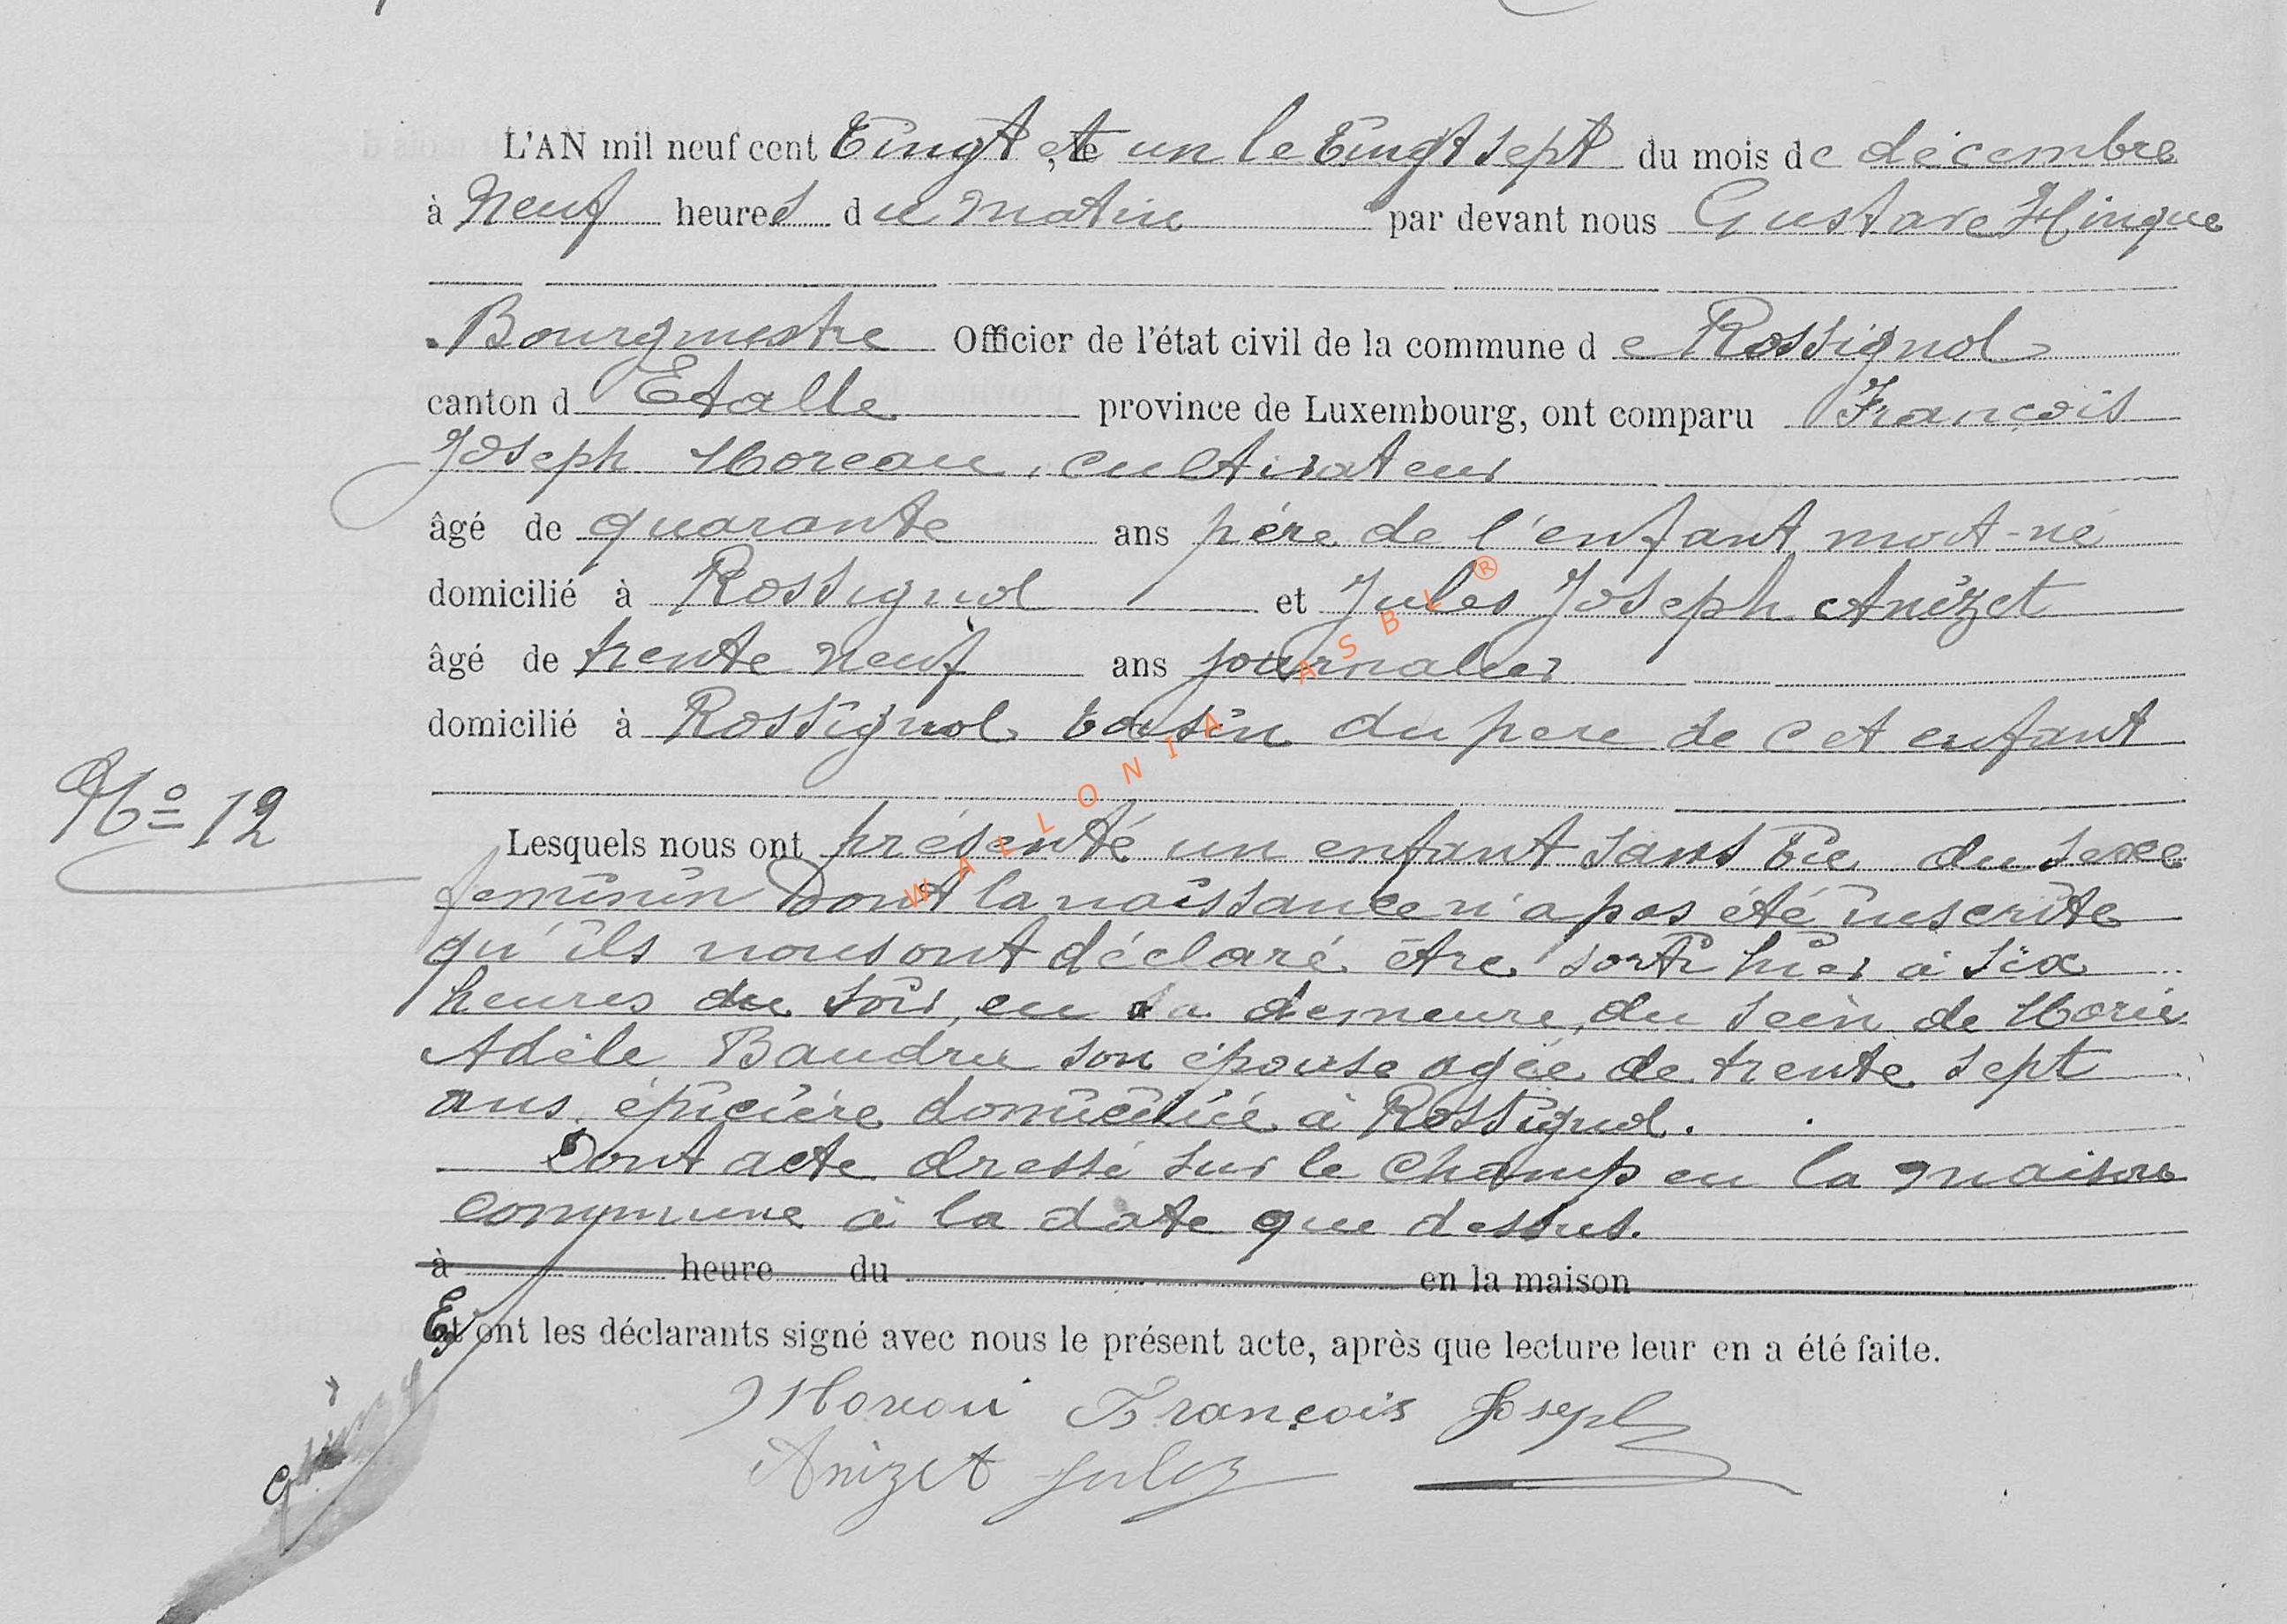 L'AN mil neuf cent Vingt et un le Vingt sept du mois de décembre
à Neuf heures du matin par devant nous Gustave Hinque
Bourgmestre Officier de l'état civil de la commune de Rossignol
canton d Etalle province de Luxembourg, ont comparu François
Joseph Moreau, cultivateur
âgé de quarante ans père de l'enfant mort-né
domicilié à Rossignol et Jules Joseph Anizet
âgé de trente neuf ans journalier
domicilié à Rossignol voisin du pere de cet enfant
No 12
Lesquels nous ont présenté un enfant sans vie du sexe
feminin dont la naissance n'a pas été inscrite
qu'ils nous ont déclaré être sorti hier à six
heures du soir, en sa demeure, du sein de Marie
Adèle Baudru son épouse agée de trente sept
ans, épicière domiciliée à Rossignol.
Dont acte dressé sur le champ en la maison
commune à la date que dessus.
à heure du en la maison
Et ont les déclarants signé avec nous le présent acte, après que lecture leur en a été faite.
François Joseph
Anizet Jules
WALLONIA ASBL ®